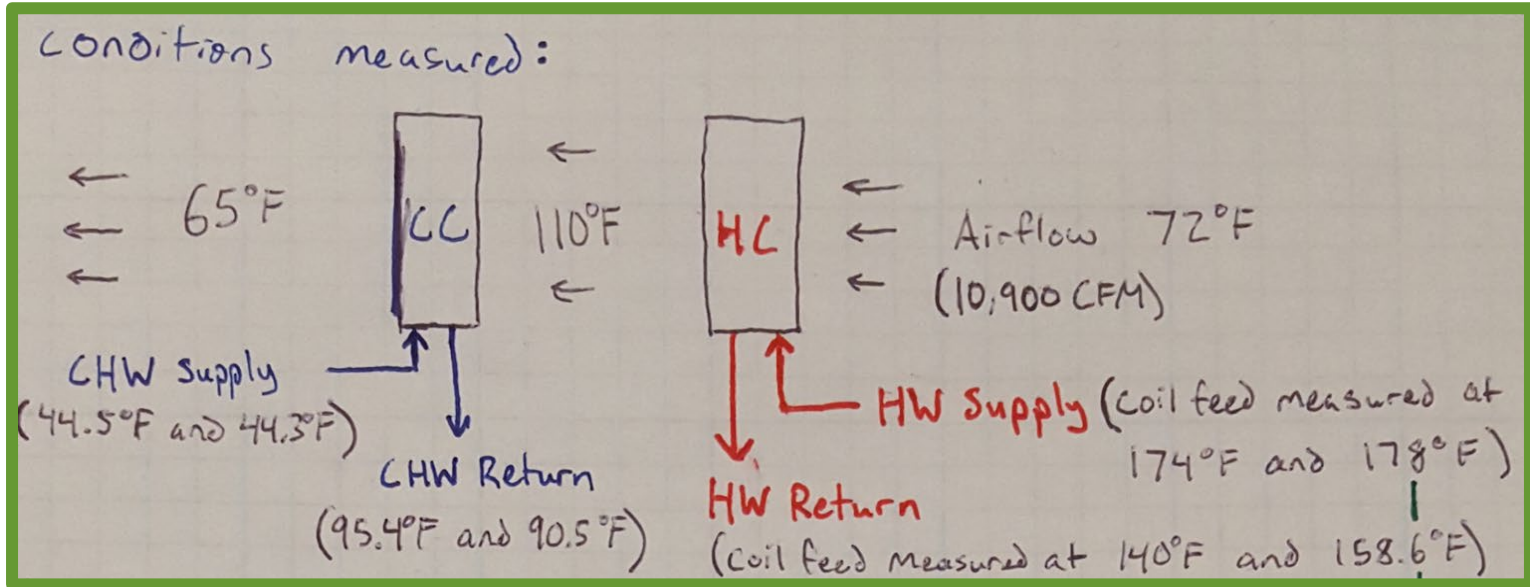 Conditions measured:
65°F
CC
110°F
HC
Airflow 72°F
(10,900 CFM)
CHW Supply
(44.5°F and 44.3°F)
CHW Return
(95.4°F and 90.5°F)
HW Supply (coil feed measured at
174°F and 178°F)
HW Return
(coil feed measured at 140°F and 158.6°F)